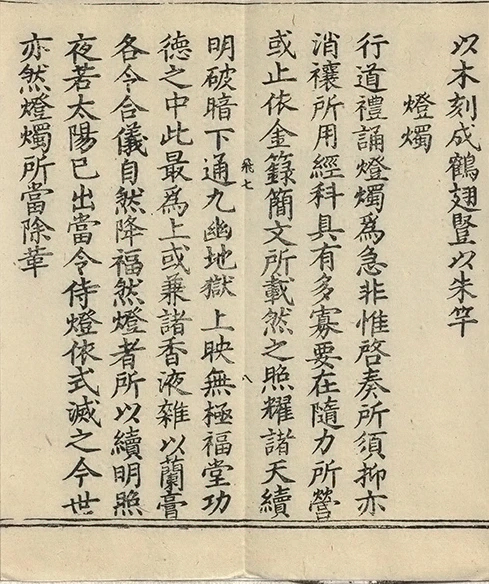 以木刻成鶴翅豎以朱竿
燈燭
行道禮誦燈燭爲急非惟啓奏所須抑亦
消禳所用經科具有多寡要在隨力所營
或止依金籙簡文所載然之照耀諸天續
飛七
明破暗下通九幽地獄上映無極福堂功
德之中此最爲上或兼諸香液雜以蘭膏
各令合儀自然降福然燈者所以續明照
夜若太陽已出當令侍燈依式滅之今世
亦然燈燭所當除革